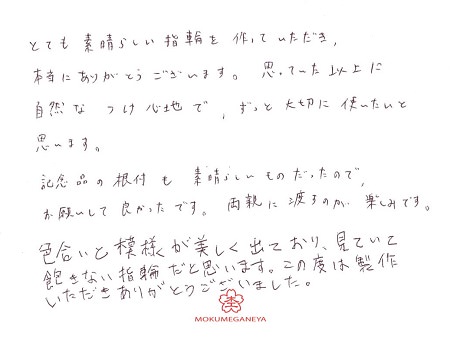 とても素晴らしい指輪を作っていただき、
本当にありがとうございます。思っていた以上に
自然なつけ心地で、ずっと大切に使いたいと
思います。
記念品の根付も素晴らしいものだったので、
お願いして良かったです。両親に渡すのが楽しみです。
色合いと模様が美しく出ており、見ていて
飽きない指輪だと思います。この度は製作
いただきありがとうございました。
MOKUMEGANEYA